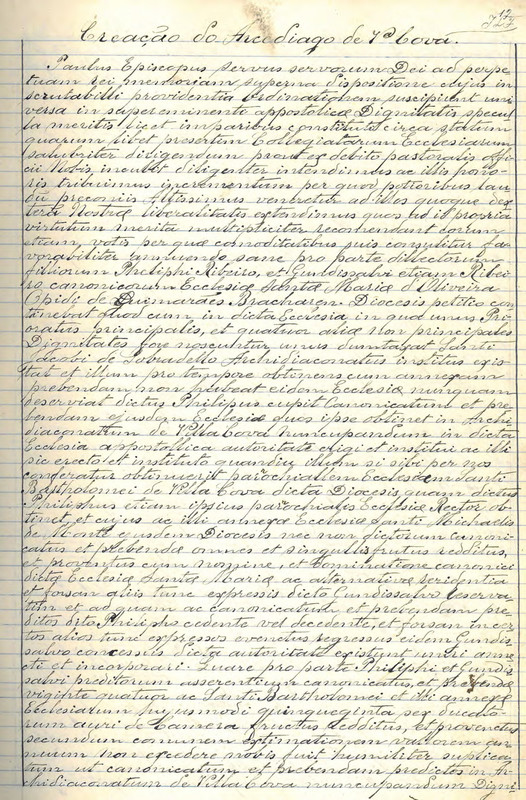 Creação do Arcediago de Vª Cova.
Paulus Episcopus servus servorum Dei ad perpe
tuam rei memoriam superna dispositione cujus in
scrutabilli providentia ordinationem suscipiunt uni
versa in supereminente appostolicæ Dignitatis specul
la meritis licet imparibus constitutis circa statum
quarum libet presertim Collegiatarum Ecclesiarum
salubriter dirigendum prout ex debito pastoralis offi
cii Nobis incubit diligenter intendimus ac illis hono
ris tribuimus incrementum per quod potioribus lau
du preconiis Altissimus veneretur ad eos quoque dex
teram Nostræ liberalitatis extendimus quos ad it propria
virtutum merita multipliciter recomendant eorum
etiam, votis per quæ comoditatibus suis consulitur fa
vorabiliter annuendo sane pro parte dillectorum
filiorum Philiphi Ribeiro, et Gundissalvi etiam Ribei
ro, canonicorum Ecclesiæ Santæ Mariæ d'Oliveira
Opidi de Guimarães Bracharen. Diocesis petitio con
tinebat quod cum in dicta Ecclesia in qua unus Pri
oratus principalis, et quatuor aliæ non principales
Dignitates fore noscuntur unus dumtaxat Santi
Jacobi de Sobradello Archidiaconatus institus exis
tat et illum pro tempore obtinens cum annexam
prebendam non habeat eidem Ecclesiæ nunquam
deserviat dictus Philipus cupit Canonicatum et pre
bendam ejusdem Ecclesiæ quos ipse obtinet in Archi
diaconatum de Villa Cova nuncupandum in dicta
Ecclesia appostollica autoritate erigi et institui ac illi
sic erecto et instituto quandiu illum si sibi per nos
conferatur obtinuerit parochialem Ecclesiam Santi
Bartholomei de Villa Cova dicta Diocesis quam dictus
Philiphus etiam ipsius parochialis Ecclesiæ Rector ob
tinet, et cujus ac illi annexæ Ecclesiæ Santi Michaelis
de Monte ejusdem Diocesis nec non dictorum canoni
catus et prebendæ omnes et singulis frutus redditus,
et proventus cum nomine, et
dictæ Ecclesiæ Santæ Mariæ ac alternativæ
et forsan aliis tunc expressis dicto Gundissalvo reserva
tum et ad quam ac canonicatum et prebendam pre
ditos dito Philipho cedente vel decedente, et forsan in cer
tos alios tunc expressos eventus regressus eidem Gundis
salvo concessus dicta autoritate existunt uniri anne
cti et incorporari. Quare pro parte Philiphi et Gundis
salvi preditorum asserentium canonicatus, et prebendæ
viginti quatuor ac Santi Bartholomei et illi annexæ
Ecclesiarum hujusmodi quinqueginta sex ducato
rum auri de Camera fructus redditus, et proventus
secundum comunem extimationem valorem an
nuum non excedere novis fuit humiliter suplica
tum ut canonicatum et prebendam predictos in Ar
chidiaconatum de Villa Cova nuncupandum Digni